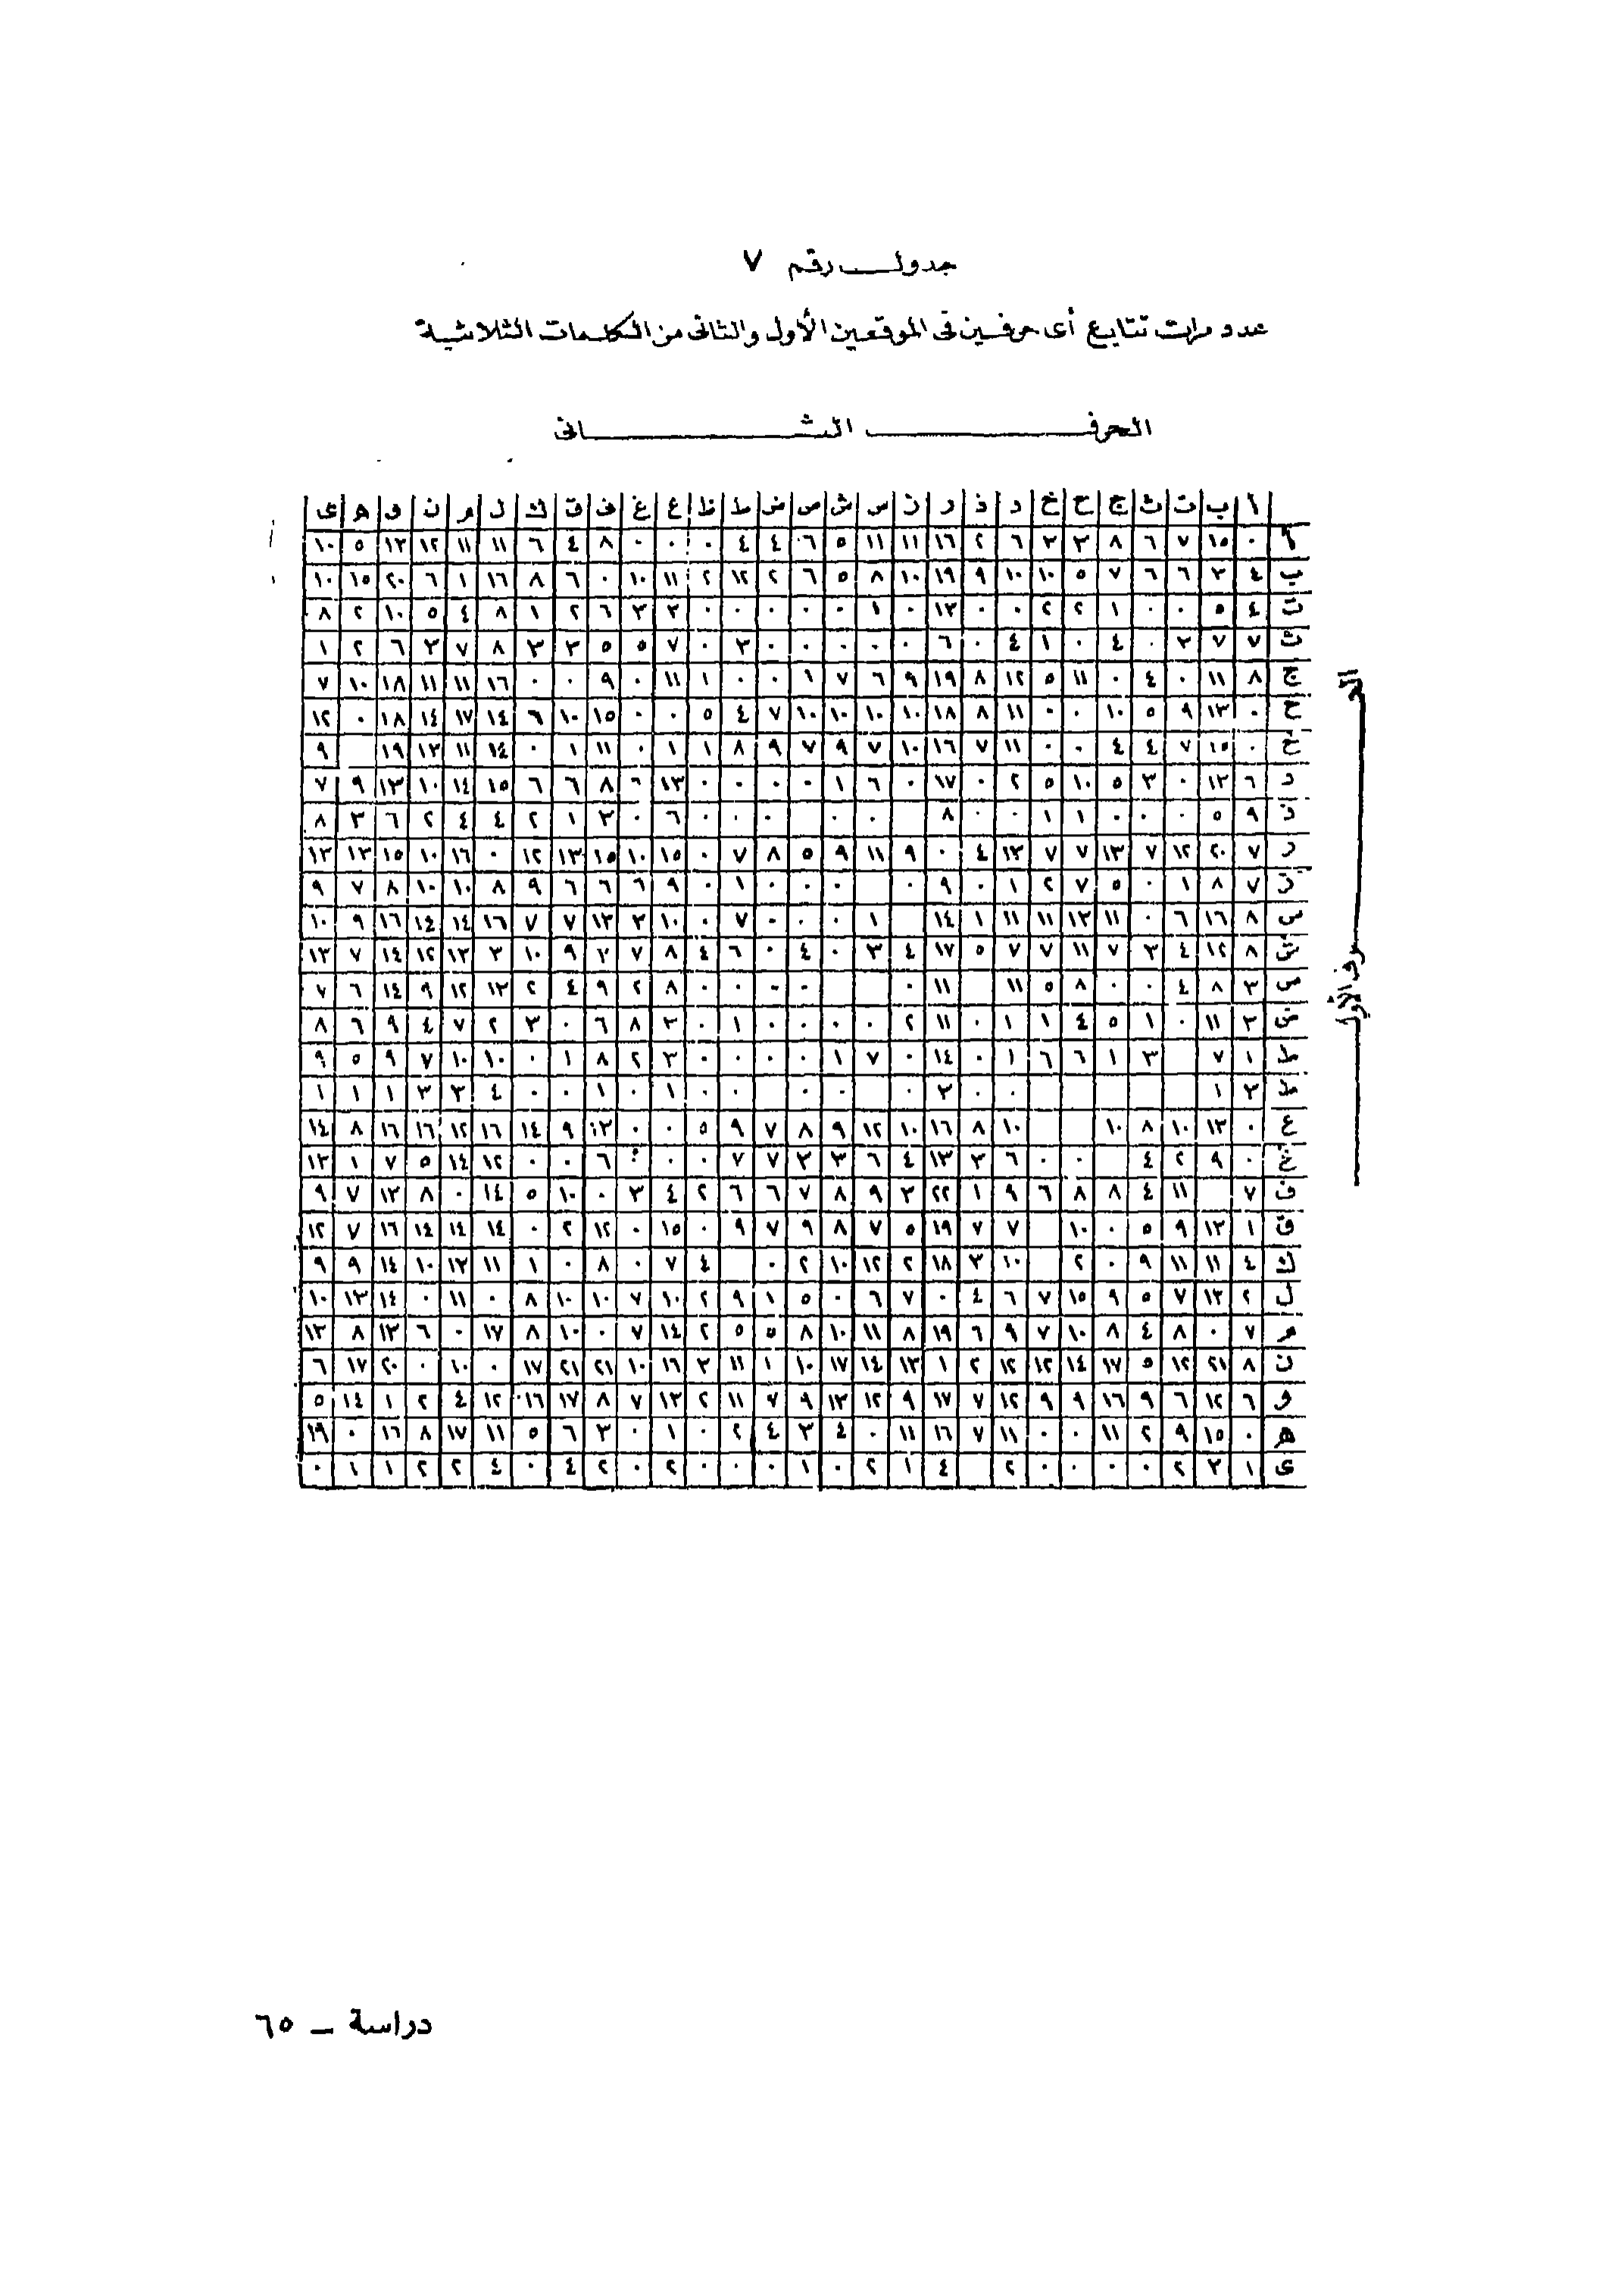 جدول رقم ٧
عدد مرات تتابع أى حرفين فى الموقعين الأول والثانى من الكلمات الثلاثية
الحرف الثانى
ا ب ت ث ج ح خ د ذ ر ز س ش ص ض ط ظ ع غ ف ق ك ل م ن و ه ى
الحرف الأول
أ ٠ ١٥ ٧ ٦ ٨ ٣ ٣ ٦ ٢ ١٦ ١١ ١١ ٥ ٦ ٤ ٤ ٠ ٠ ٠ ٨ ٤ ٦ ١١ ١١ ١٢ ١٣ ٥ ١٠
ب ٤ ٣ ٦ ٦ ٧ ٥ ١٠ ١٠ ٩ ١٩ ١٠ ٨ ٥ ٦ ٢ ١٢ ٢ ١١ ١٠ ٠ ٦ ٨ ١٦ ١ ٦ ٢٠ ١٥ ١٠
ت ٤ ٥ ٠ ٠ ١ ٢ ٢ ٠ ٠ ١٣ ٠ ١ ٠ ٠ ٠ ٠ ٠ ٢ ٣ ٦ ٢ ١ ٨ ٤ ٥ ١٠ ٢ ٨
ث ٧ ٧ ٣ ٠ ٤ ٠ ١ ٤ ٠ ٦ ٠ ٠ ٠ ٠ ٠ ٣ ٠ ٧ ٥ ٥ ٣ ٣ ٨ ٧ ٣ ٦ ٢ ١
ج ٨ ١١ ٠ ٤ ٠ ١١ ٥ ١٢ ٨ ١٩ ٩ ٦ ٧ ١ ٠ ٠ ١ ١١ ٠ ٩ ٠ ٠ ١٦ ١١ ١١ ١٨ ١٠ ٧
ح ٠ ١٣ ٩ ٥ ١٠ ٠ ٠ ١١ ٨ ١٨ ١٠ ١٠ ١٠ ١٠ ٧ ٤ ٥ ٠ ٠ ١٥ ١٠ ٦ ١٤ ١٧ ١٤ ١٨ ٠ ١٢
خ ٠ ١٥ ٧ ٤ ٤ ٠ ٠ ١١ ٧ ١٦ ١٠ ٧ ٩ ٧ ٩ ٨ ١ ١ ٠ ١١ ١ ٠ ١٤ ١١ ١٣ ١٩ ٩
د ٦ ١٣ ٠ ٣ ٥ ١٠ ٥ ٢ ٠ ١٧ ٠ ٦ ١ ٠ ٠ ٠ ٠ ١٣ ٦ ٨ ٦ ٦ ١٥ ١٤ ١٠ ١٣ ٩ ٧
ذ ٩ ٥ ٠ ٠ ٠ ١ ١ ٠ ٠ ٨ ٠ ٠ ٠ ٠ ٠ ٦ ٠ ٣ ١ ٢ ٤ ٤ ٢ ٦ ٣ ٨
ر ٧ ٢٠ ١٢ ٧ ١٣ ٧ ٧ ١٣ ٤ ٠ ٩ ١١ ٩ ٥ ٨ ٧ ٠ ١٥ ١٠ ١٥ ١٣ ١٢ ٠ ١٦ ١٠ ١٥ ١٣ ١٣
ز ٧ ٨ ١ ٠ ٥ ٧ ٢ ١ ٠ ٩ ٠ ٠ ٠ ٠ ١ ٠ ٩ ٦ ٦ ٦ ٩ ٨ ١٠ ١٠ ٨ ٧ ٩
س ٨ ١٦ ٦ ٠ ١١ ١٣ ١١ ١١ ١ ١٤ ١ ٠ ٠ ٠ ٧ ٠ ١٠ ٣ ١٣ ٧ ٧ ١٦ ١٤ ١٤ ١٦ ٩ ١٠
ش ٨ ١٢ ٤ ٣ ٧ ١١ ٧ ٧ ٥ ١٧ ٤ ٣ ٠ ٤ ٠ ٦ ٤ ٨ ٧ ٢ ٩ ١٠ ٣ ١٣ ١٢ ١٤ ٧ ١٣
ص ٣ ٨ ٤ ٠ ٠ ٨ ٥ ١١ ١١ ٠ ٠ ٠ ٠ ٠ ٨ ٢ ٩ ٤ ٢ ١٣ ١٢ ٩ ١٤ ٦ ٧
ض ٣ ١١ ٠ ١ ٥ ٤ ١ ١ ٠ ١١ ٢ ٠ ٠ ٠ ٠ ١ ٠ ٣ ٨ ٦ ٠ ٣ ٢ ٧ ٤ ٩ ٦ ٨
ط ١ ٧ ٣ ١ ٦ ٦ ١ ٠ ١٤ ٠ ٧ ١ ٠ ٠ ٠ ٠ ٣ ٢ ٨ ١ ٠ ١٠ ١٠ ٧ ٩ ٥ ٩
ظ ٣ ١ ٠ ٠ ٣ ٠ ٠ ٠ ٠ ٠ ٠ ١ ٠ ١ ٠ ٠ ٤ ٣ ٣ ١ ١ ١
ع ٠ ١٣ ١٠ ٨ ١٠ ١٠ ٨ ١٦ ١٠ ١٢ ٩ ٨ ٧ ٩ ٥ ٠ ٠ ١٣ ٩ ١٤ ١٦ ١٢ ١٦ ١٦ ٨ ١٤
غ ٠ ٩ ٢ ٤ ٠ ٠ ٦ ٣ ١٣ ٤ ٦ ٣ ٣ ٧ ٧ ٠ ٠ ٦ ٠ ٠ ١٢ ١٤ ٥ ٧ ١ ١٣
ف ٧ ١١ ٤ ٨ ٨ ٦ ٩ ١ ٢٢ ٣ ٩ ٨ ٧ ٦ ٦ ٢ ٤ ٣ ٠ ١٠ ٥ ١٤ ٠ ٨ ١٣ ٧ ٩
ق ١ ١٣ ٩ ٥ ٠ ١٠ ٧ ٧ ١٩ ٥ ٧ ٨ ٩ ٧ ٩ ٠ ١٥ ٠ ١٢ ٢ ٠ ١٤ ١٤ ١٤ ١٦ ٧ ١٢
ك ٤ ١١ ١١ ٩ ٠ ٢ ١٠ ٣ ١٨ ٢ ١٢ ١٠ ٢ ٠ ٤ ٧ ٠ ٨ ٠ ١ ١١ ١٣ ١٠ ١٤ ٩ ٩
ل ٢ ١٣ ٧ ٥ ٩ ١٥ ٧ ٦ ٤ ٠ ٧ ٦ ٠ ٥ ١ ٩ ٢ ١٠ ٧ ١٠ ١٠ ٨ ٠ ١١ ٠ ١٤ ١٣ ١٠
م ٧ ٠ ٨ ٤ ٨ ١٠ ٧ ٩ ٦ ١٩ ٨ ١١ ١٠ ٨ ٥ ٥ ٢ ١٤ ٧ ٠ ١٠ ٨ ١٧ ٠ ٦ ١٣ ٨ ١٣
ن ٨ ٢١ ١٢ ٥ ١٧ ١٤ ١٢ ١٢ ٢ ١ ١٣ ١٤ ١٧ ١٠ ١ ١١ ٣ ١٦ ١٠ ٢١ ٢١ ١٧ ٠ ١٠ ٠ ٢٠ ١٧ ٦
و ٦ ١٢ ٦ ٩ ١٦ ٩ ٩ ١٢ ٧ ١٧ ٩ ١٢ ١٣ ٩ ٧ ١١ ٢ ١٣ ٧ ٨ ١٧ ١٦ ١٢ ٤ ٢ ١ ١٤ ٥
ه ٠ ١٥ ٩ ٢ ١١ ٠ ٠ ١١ ٧ ١٦ ١١ ٠ ٤ ٣ ٤ ٢ ٠ ١ ٠ ٣ ٦ ٥ ١١ ١٧ ٨ ١٦ ٠ ١٩
ى ١ ٣ ٢ ٠ ٠ ٠ ٠ ٢ ٤ ١ ٢ ٠ ١ ٠ ٠ ٠ ٢ ٠ ٢ ٤ ٠ ٤ ٢ ٢ ١ ١ ٠
دراسة – ٦٥